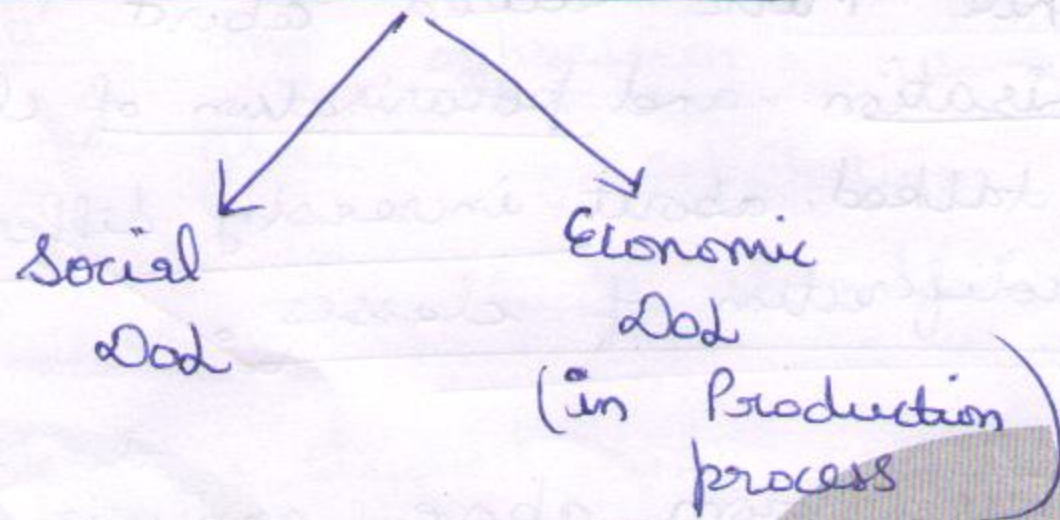 Social
DoL
Economic
DoL
(in Production
process)